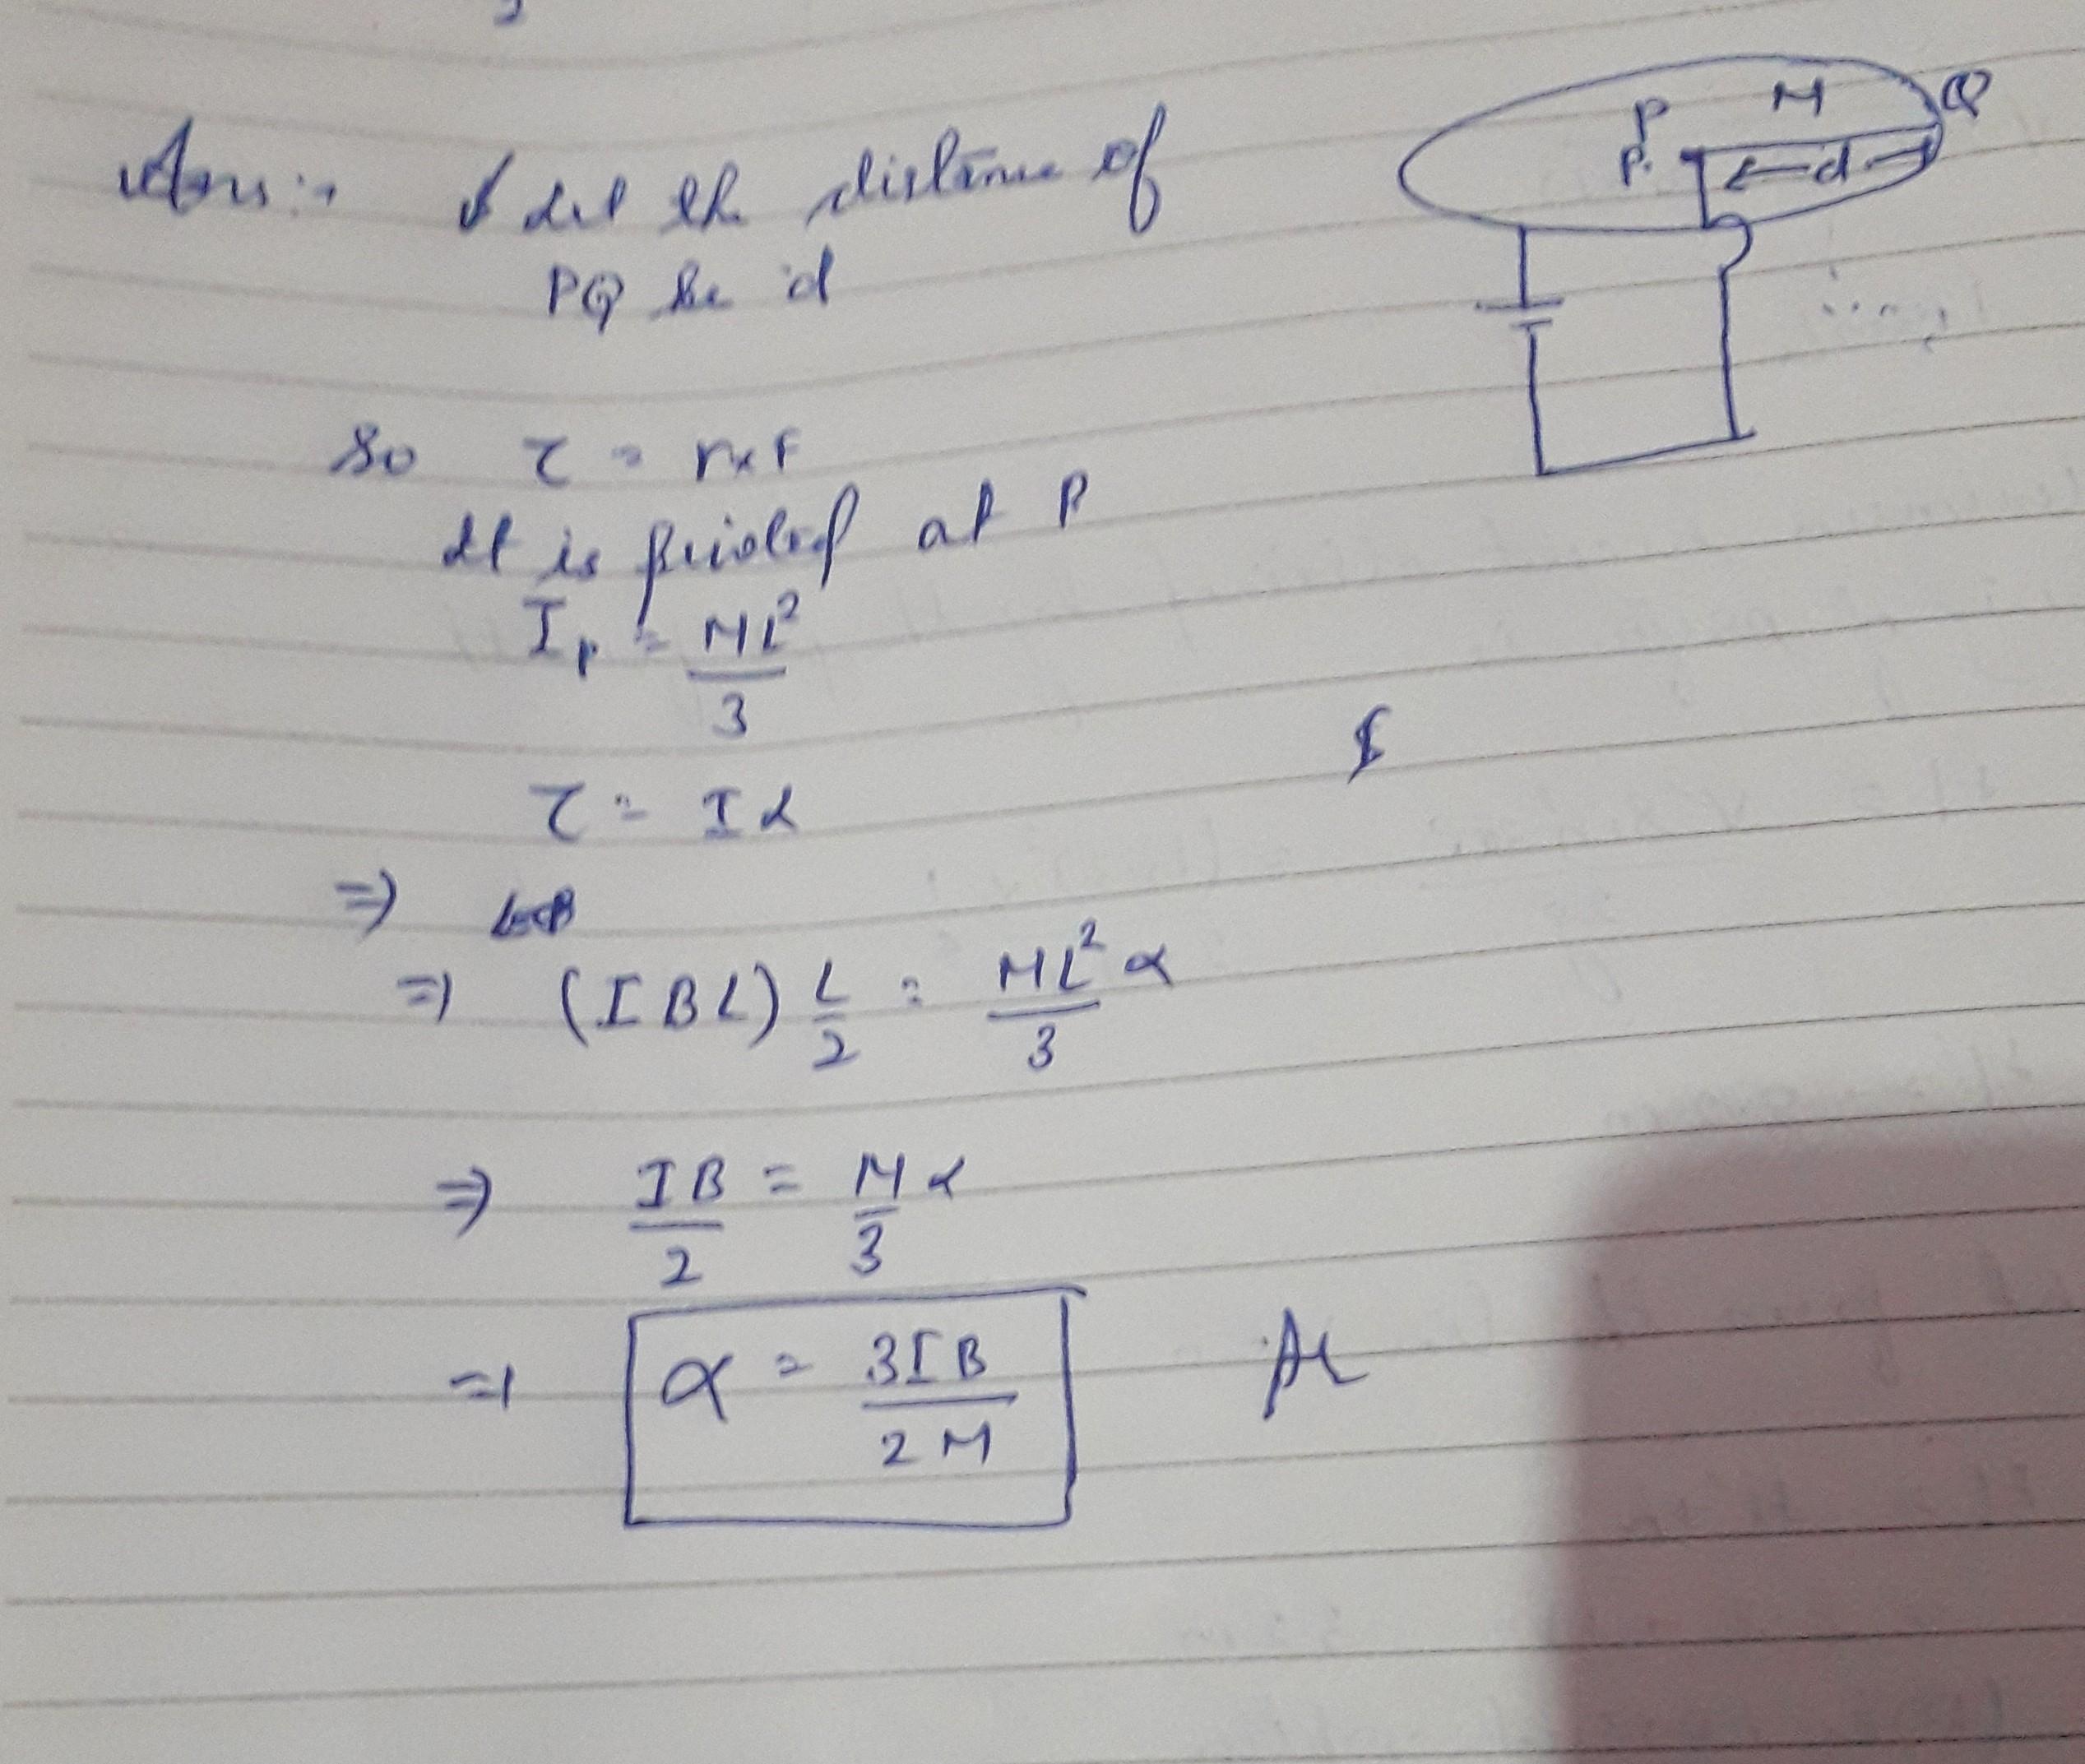 Ans:- Let the distance of
PQ be d
P M Q
P. d
So τ = r×F
It is pivoted at P
I_P = ML²/3
τ = Iα
⇒
⇒ (IBL) L/2 = ML²/3 α
⇒ IB/2 = M/3 α
⇒ α = 3IB/2M